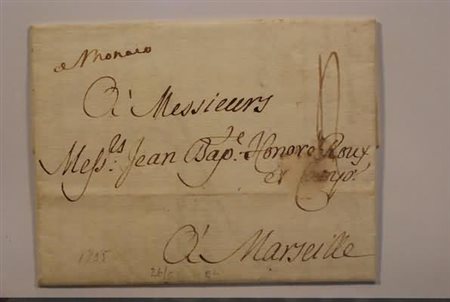 de Monaco
A Messieurs
Mess.rs Jean Bap.e Honoré Roux
et Comp.e
A Marseille